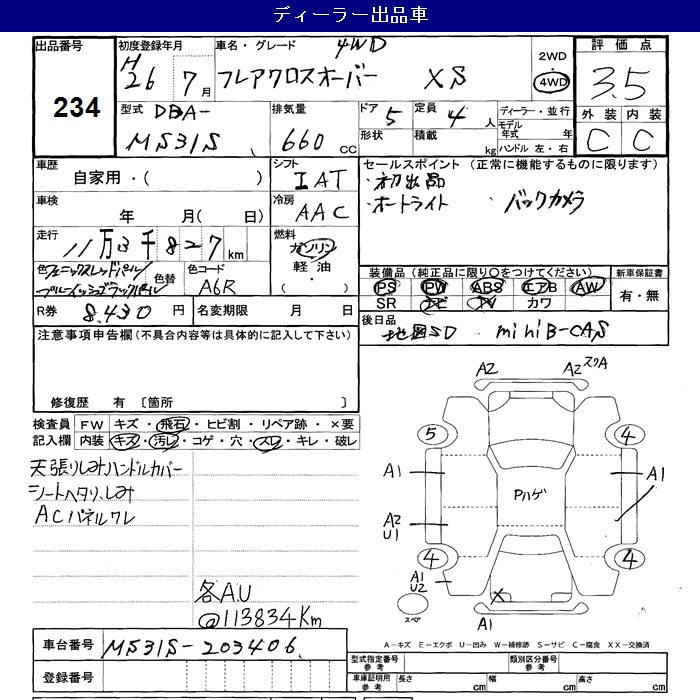 ディーラー出品車
出品番号
234
初度登録年月
H26年 7月
車名・グレード 4WD
フレアクロスオーバー XS
2WD
4WD
評価点
3.5
外装 内装
C C
型式 DBA-
MS31S
排気量
660 cc
ドア 5
定員 4人
形状
積載 kg
ディーラー・並行
モデル年式 年
ハンドル 左・右
車歴
自家用・( )
シフト
IAT
車検
年 月( 日)
冷房
AAC
走行
11万3千827km
燃料
ガソリン
軽油
・( )
色 フェニックスレッドパール/
ブルーイッシュブラックパール
色替
色コード
A6R
R券 8,430円
名変期限 月 日
セールスポイント (正常に機能するものに限ります)
・初出品
・オートライト ・バックカメラ
装備品(純正品に限り○をつけてください)
PS PW ABS エアB AW
SR ナビ TV カワ
新車保証書
有・無
後日品
地図SD miniB-CAS
注意事項申告欄(不具合内容等は具体的に記入して下さい)
修復歴 有 〔箇所 〕
検査員記入欄
FW キズ・飛石・ヒビ割・リペア跡・×要
内装 キズ・汚レ・コゲ・穴・スレ・キレ・破レ
天張りしみハンドルカバー
シートヘタリ、しみ
ACパネルワレ
各AU
@113834Km
A2
A2 スリA
5
4
A1
A1
Pハゲ
A2
U1
4
4
A1
U2
X
スペア
A1
A-キズ E-エクボ U-凹み W-補修跡 S-サビ C-腐食 XX-交換済
車台番号 MS31S-203406
登録番号
型式指定番号 参考
類別区分番号 参考
車庫証明用 参考
長さ cm
幅 cm
高さ cm